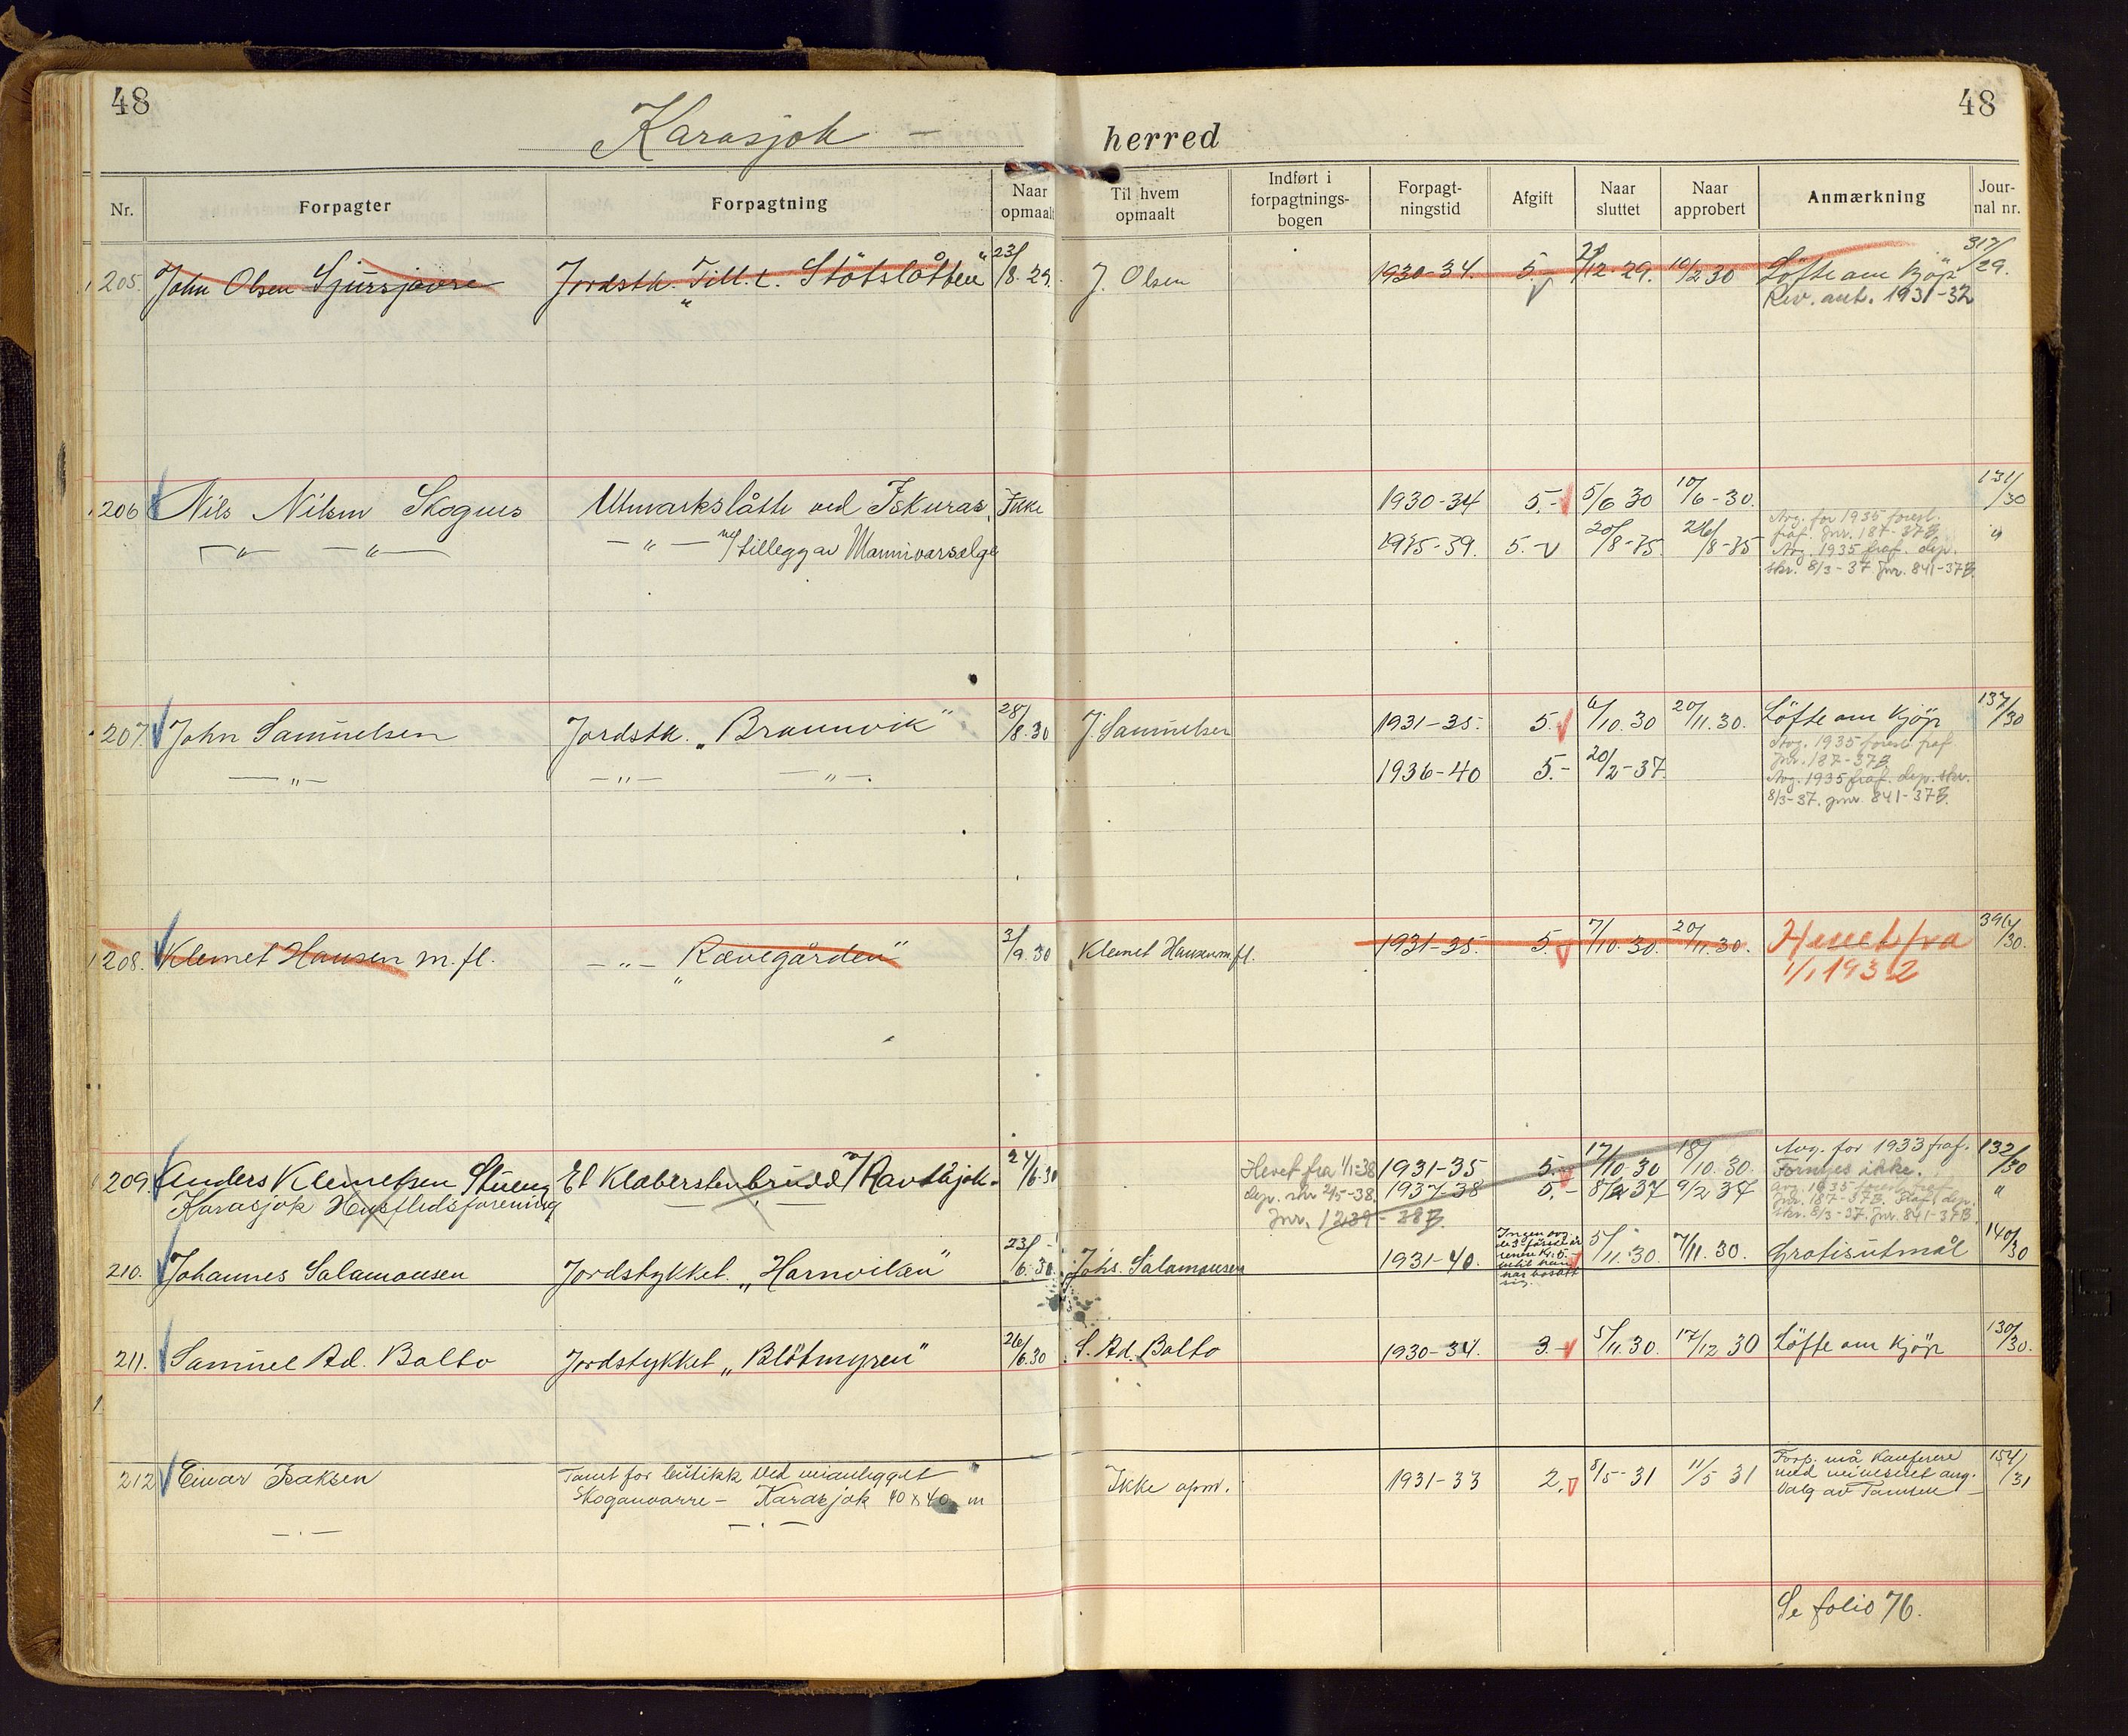 48
48
Karasjok - herred
Nr. Forpagter Forpagtning Naar opmaalt Til hvem opmaalt Indført i forpagtnings-bogen Forpagt-ningstid Afgift Naar sluttet Naar approbert Anmærkning Jour-nal nr.
205. John Olsen Sjursjavre Jordstk. "Till. t. Stötslåtten" 23/8-29. J. Olsen 1930-34. 5.- 21/12-29. 10/2 30 Löfte om kjöp 317/29.
Rev. ant. 1931-32
206 Nils Nilsen Skogues Utmarkslåtte ved Iskuras, Ikke 1930-34 5.- 5/6 30 10/6-30. 131/30
-"- -"- -"- m/ tillegg av Mannivarselge 1935-39. 5.- 20/8-35. 26/8-35 "
Avg. for 1935 foresl.
fraf. Jnr. 187-37B
Avg. 1935 fraf. dep.
skr. 8/3-37. Jnr. 841-37B.
207. John Samuelsen Jordstk. "Braunvik" 28/8.30 J. Samuelsen 1931-35. 5.- 6/10.30 20/11.30. Löfte om kjöp 137/30
-"- -"- -"-. 1936-40 5.- 20/2-37.
Avg. 1935 foresl. fraf.
Jnr. 187-37B
Avg. 1935 fraf. dep. skr.
8/3-37. Jnr. 841-37B.
208. Klemet Hansen m.fl. -"- "Rævegården" 3/9.30 Klemet Hansen m.fl. 1931-35. 5.- 7/10.30. 20/11.30. Hevet fra 396/30.
1/1 1932
209. Anders Klemetsen Stueng Et Kleberstenbrudd v/ Ravdojok. 24/6.30 Hevet fra 1/1-38 1931-35 5.- 17/10.30 18/10.30. Avg. for 1933 fraf. 132/30
Fornyes ikke.
Karasjok Husflidsforening dep. skr 2/5-38. 1937-38 5.- 8/2 37 9/2 37 "
Jnr. 1239-38B.
Avg. 1935 foresl. fraf.
Jnr. 187-37B. Fraf. dep.
skr. 8/3-37. Jnr. 841-37B.
210. Johannes Salamonsen Jordstykket "Harnviken" 23/6.30. Johs. Salamonsen 1931-40. 5/11.30. 7/11.30. Gratisutmål 140/30
Ingen avg.
de 3 første år
senere kr. 5.-
inntil han
har bosatt
sig.
211. Samuel Ad. Balto Jordstykket "Blötmyren" 26/6.30 S. Ad. Balto 1930-34. 3.- 5/11.30. 17/12 30 Löfte om kjöp 130/30.
212 Einar Isaksen Tomt for butikk ved veianlegget Ikke opm. 1931-33 2.- 8/5-31 11/5 31 Forp. må konferere 154/31
Skoganvarre - Karasjok 40 x 40 m med veivesenet ang.
Valg av Tomten
Se folio 76.